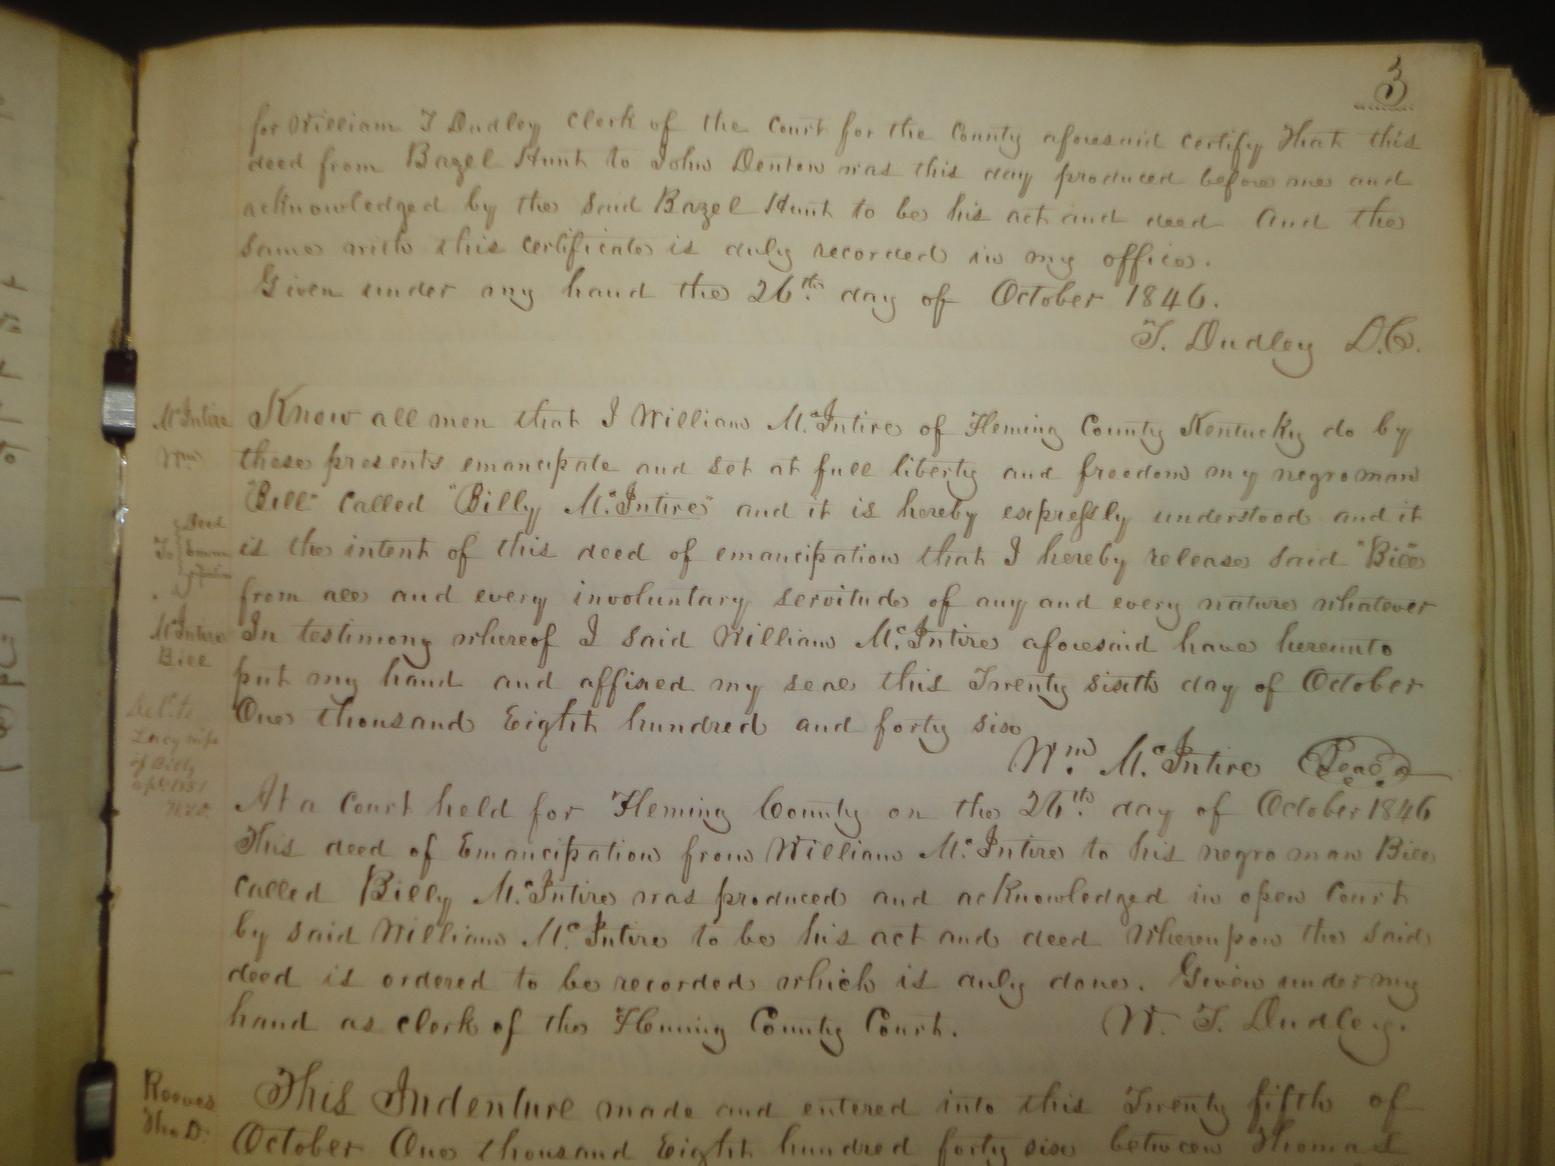 3
for William T Dudley Clerk of the Court for the County aforesaid certify that this
deed from Bazel Hunt to John Denton was this day produced before me and
acknowledged by the said Bazel Hunt to be his act and deed and the
same with this certificate is duly recorded in my office.
Given under my hand the 26th day of October 1846.
T. Dudley D.C.
McIntire
Wm
Know all men that I William McIntire of Fleming County Kentucky do by
these presents emancipate and set at full liberty and freedom my negro man
"Bill" called "Billy McIntire" and it is hereby expressly understood and it
is the intent of this deed of emancipation that I hereby release said "Bill"
from all and every involuntary servitude of any and every nature whatever
In testimony whereof I said William McIntire aforesaid have hereunto
put my hand and affixed my seal this Twenty sixth day of October
One thousand Eight hundred and forty six
To Deed
Eman
cipation
McIntire
Bill
Del. to
Lucy wife
of Billy
Wm. McIntire Seal
At a Court held for Fleming County on the 26th day of October 1846
This deed of Emancipation from William McIntire to his negro man Bill
called Billy McIntire was produced and acknowledged in open Court
by said William McIntire to be his act and deed Whereupon the said
deed is ordered to be recorded which is duly done. Given under my
hand as clerk of the Fleming County Court. W. T. Dudley.
Reeves
Tho D.
This Indenture made and entered into this Twenty fifth of
October One thousand Eight hundred forty six between Thomas